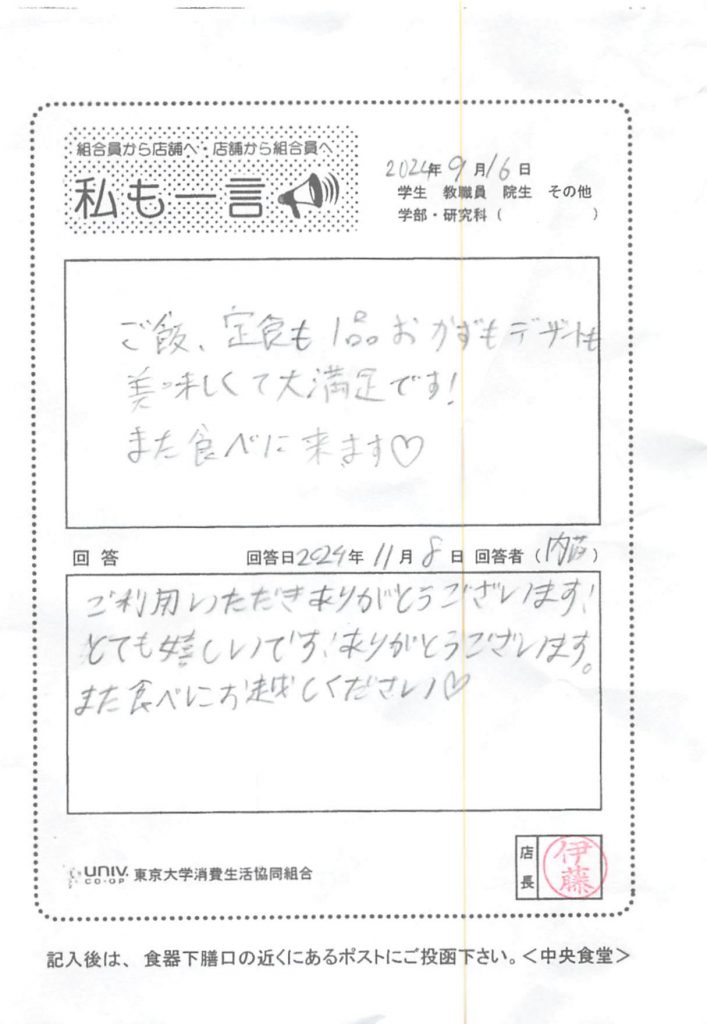 組合員から店舗へ・店舗から組合員へ
私も一言
2024年9月16日
学生 教職員 院生 その他
学部・研究科（ ）
ご飯、定食も1品おかずもデザートも
美味しくて大満足です!
また食べに来ます♡
回答 回答日2024年11月8日 回答者（内藤）
ご利用いただきありがとうございます!
とても嬉しいです!ありがとうございます。
また食べにお越しください♡
univ. CO-OP 東京大学消費生活協同組合
店長 伊藤
記入後は、食器下膳口の近くにあるポストにご投函下さい。＜中央食堂＞